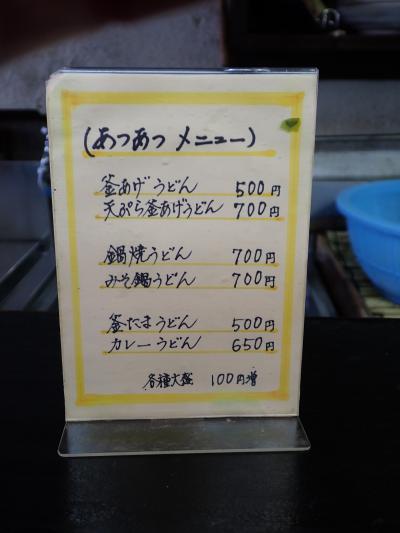 (あつあつ メニュー)
釜あげうどん 500円
天ぷら釜あげうどん 700円
鍋焼うどん 700円
みそ鍋うどん 700円
釜たまうどん 500円
カレーうどん 650円
各種大盛 100円増